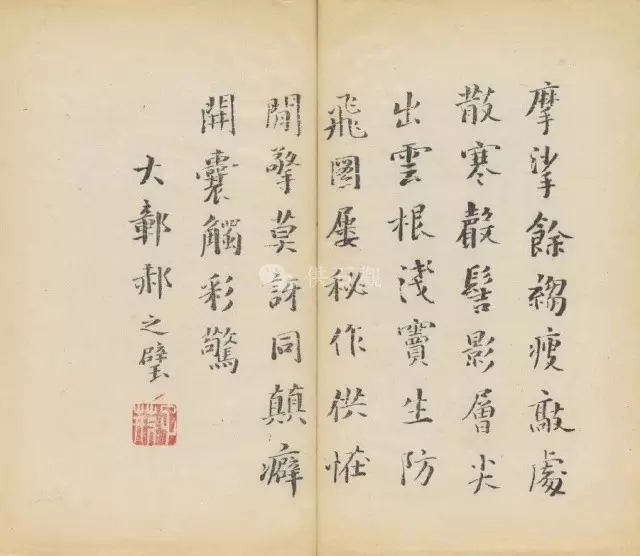 摩挲餘縐瘦敲處
散寒聲髻影層尖
出雲根淺竇生防
飛圖屢秘作供恠
閒擎莫訝同顛癖
開囊觸彩驚
大鄣郝之璧